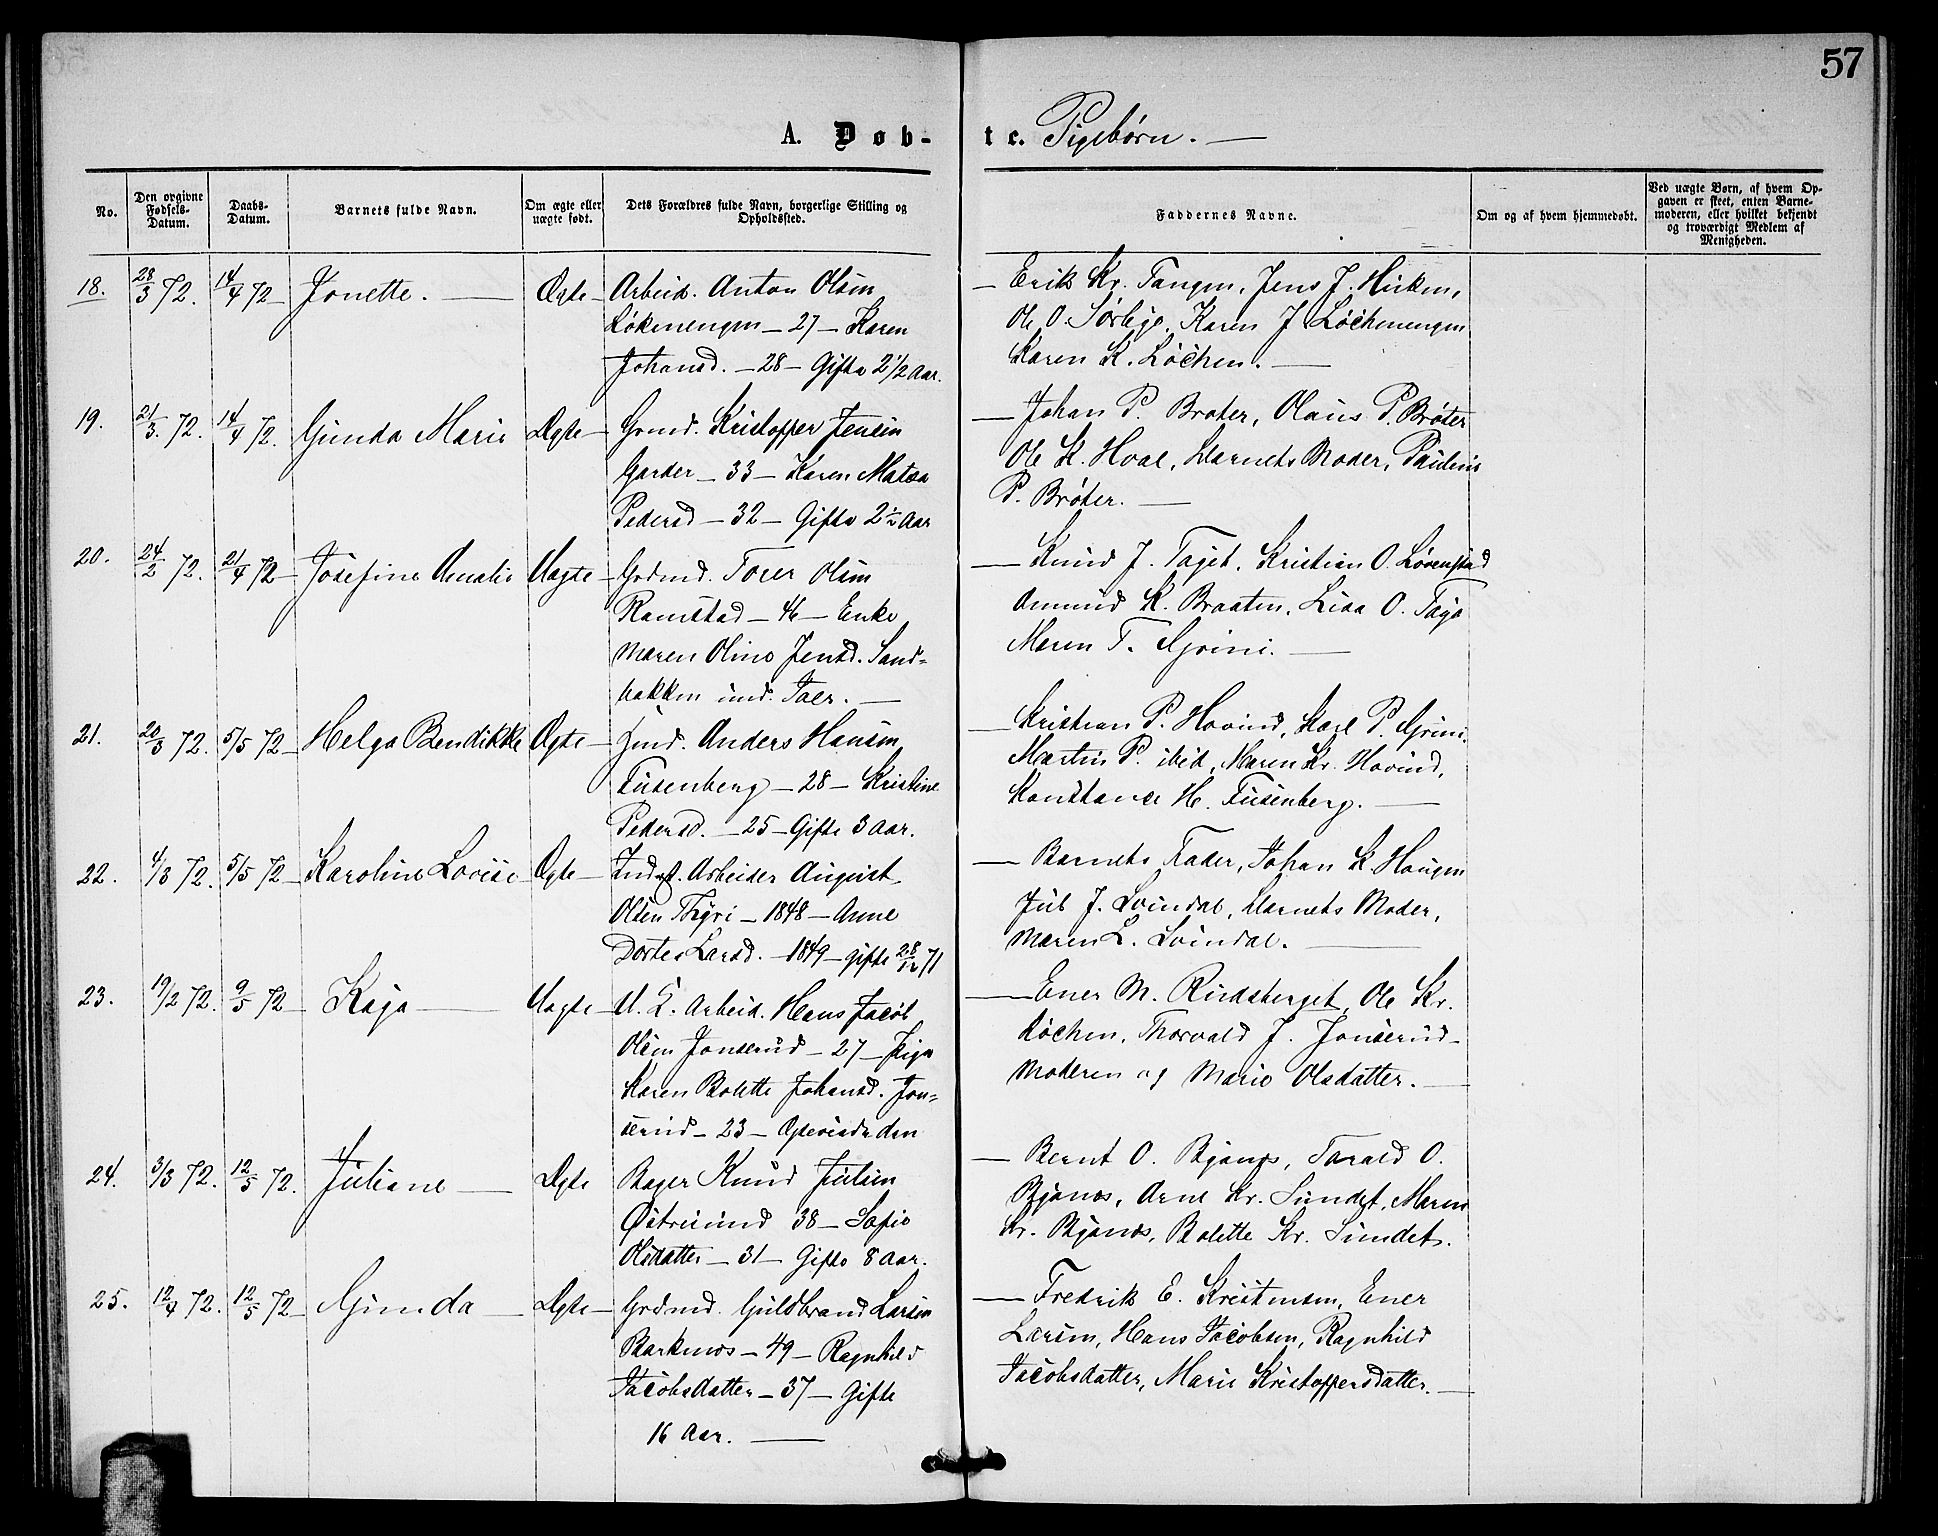 57
A. Døb- te. Pigebørn. —
No.
Den opgivne Fødsels-Datum.
Daabs-Datum.
Barnets fulde Navn.
Om ægte eller uægte født.
Dets Forældres fulde Navn, borgerlige Stilling og Opholdssted.
Faddernes Navne.
Om og af hvem hjemmedøbt.
Ved uægte Børn, af hvem Opgaven er skeet, enten Barnemoderen, eller hvilket bekjendt og troværdigt Medlem af Menigheden.
18. 28/3 72. 14/4 72 — Jonette. — Ægte — Arbeid. Anton Olsen
Løkenengen — 27 — Karen
Johansd. — 28 — Gifte 2 1/2 Aar.
— Erik Kr. Tangen, Jens J.
Ole O. Sørlige, Karen J. Løchenengen
Karen K. Løchen. —
19. 21/3. 72. 14/4 72. Gunda Marie Ægte — Grmd. Kristoffer Jensen
Garder — 33 — Karen Matea
Pedersd — 32 — Gifte 2 1/2 Aar
— Johan P. Brøter, Olaus P. Brøter
Ole K. Hval, Barnets Moder, Pauline
P. Brøter. —
20. 24/2 72. 21/4 72 — Josefine Amalie Uægte — Grdmd. Torer Olsen
Ramstad — 46 — Enke
Maren Oline Jensd. Sand-
bakken und. Taer. —
— Knud J. Taget, Kristian O. Løvenstad
Amund K. Braaten, Lisa O. Taje
Maren T. Grini. —
21. 20/3 72. 5/5 72 — Helga Bendikke Ægte — Anders Hansen
Tusenberg — 28 — Kristine
Pedersd. — 25 — Gifte 3 Aar.
— Kristian P. Hovind, Karl P. Grini.
Martin P. ibid, Maren Kr. Hovind,
Konstance H. Tusenberg. —
22. 4/3 72. 5/5 72 — Karoline Lovise Ægte — Indst. Arbeider August
Olsen Thyri — 1848 — Anne
Dortea Larsd. — 1849 — gifte 28/12 71
— Barnets Fader, Johan K. Haugen
Jul J. Svindal, Barnets Moder,
Maren L. Svindal. —
23. 19/2 72. 9/5 72 — Kaja — Uægte — U. K. Arbeid. Hans Jacob
Olsen Jonserud — 27 — Pige
Karen Bolette Johansd. Jon-
serud — 23 —
— Ener M. Rudsberget, Ole Kr.
Løchen, Thorvald J. Jonserud —
Moderen og Marie Olsdatter. —
24. 3/3 72. 12/5 72. Juliane — Ægte Bager Knud Julsen
Østreisund 38 — Sofie
Olsdatter — 31 — Gifte 8 Aar.
— Bernt O. Bjønes, Tarald O.
Bjønes, Arne Kr. Sundet, Maren
Kr. Bjønes, Bolette Kr. Sundet.
25. 12/4 72. 12/5 72 — Gunda — Ægte — Grdmd. Guldbrand Larsen
Barknæs — 49 — Ragnhild
Jacobsdatter — 37 — Gifte
16 Aar. —
— Fredrik E. Kristensen, Ener
Larsen, Hans Jacobsen, Ragnhild
Jacobsdatter, Marie Kristoffersdatter. —